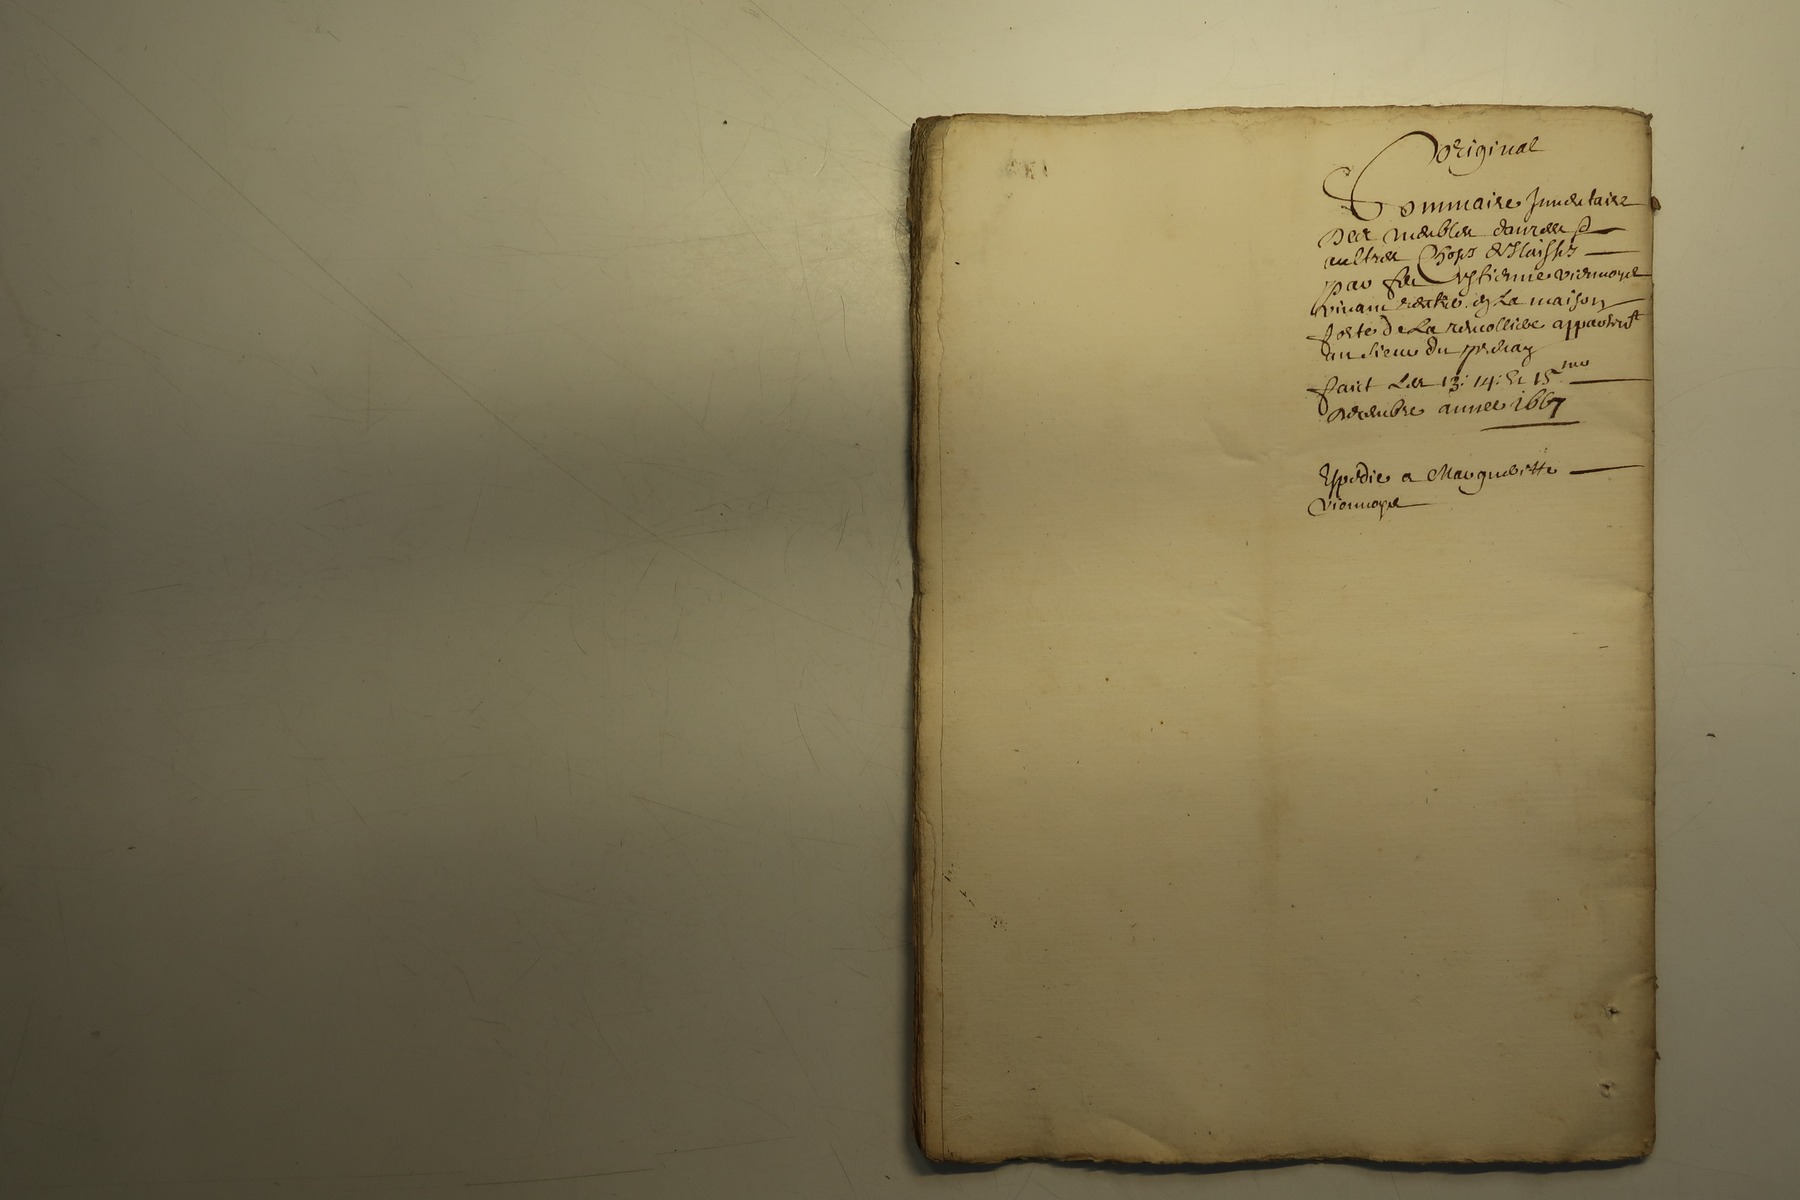 Original
Sommaire Inuentaire
Des meubles danrees et
aultres choses delaissés
par feu Estienne vionnoye
viuant rentier en la maison
forte de La remolliere appartent
au sieur du
faict Les 13: 14: et 15me
decembre annee 1667
Expedie a Margueritte
vionnoye